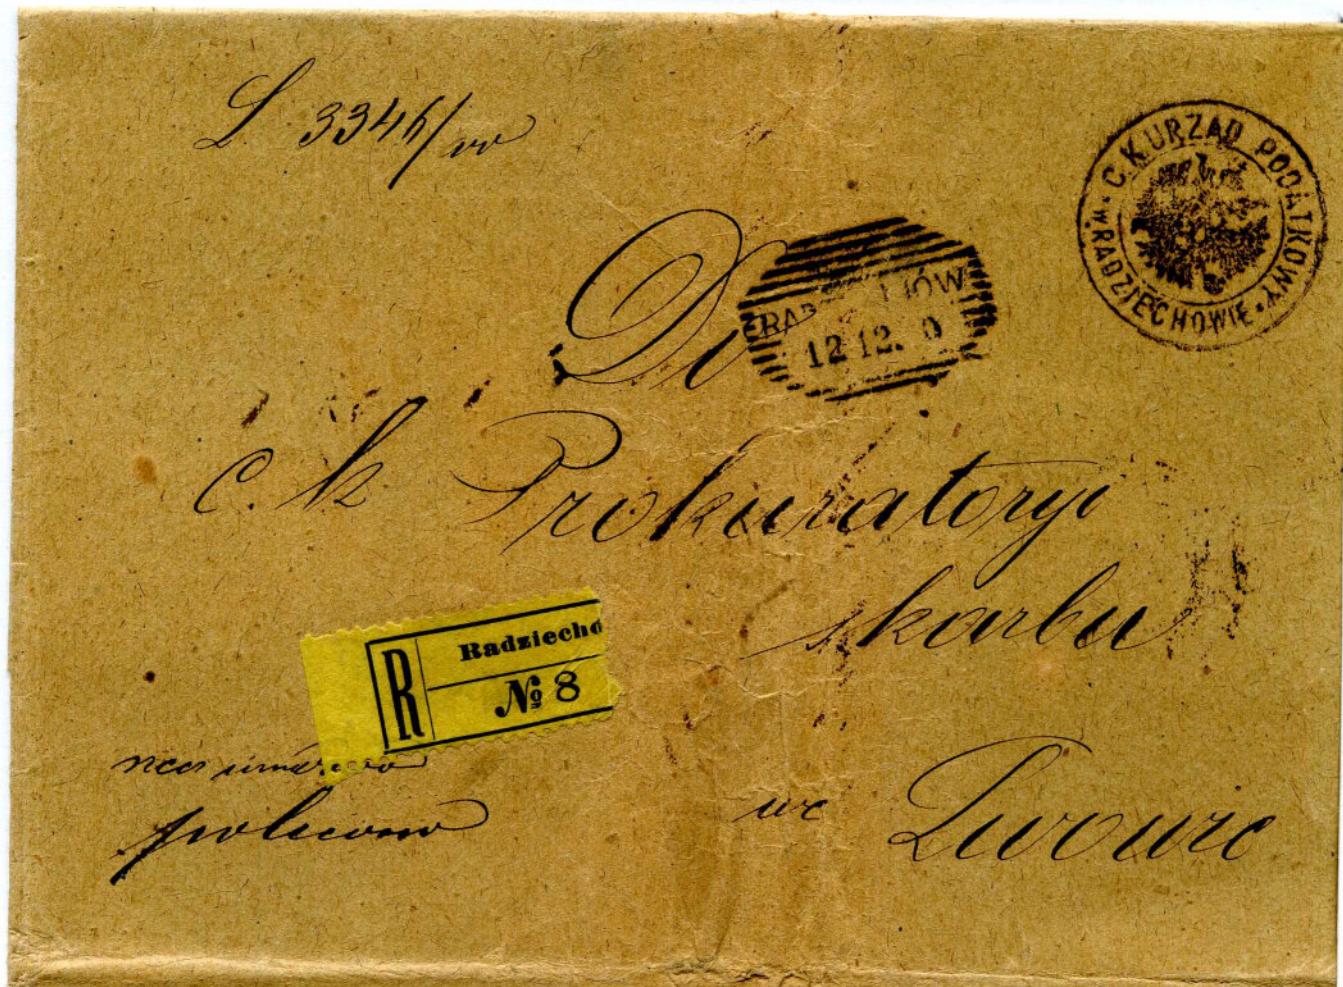 L. 3346/
C.K. URZĄD PODATKOWY
W RADZIECHOWIE
Do
12 12. 0
c. k Prokuratoryi
skarbu
R Radziechó
№ 8
polecono
we Lwowie